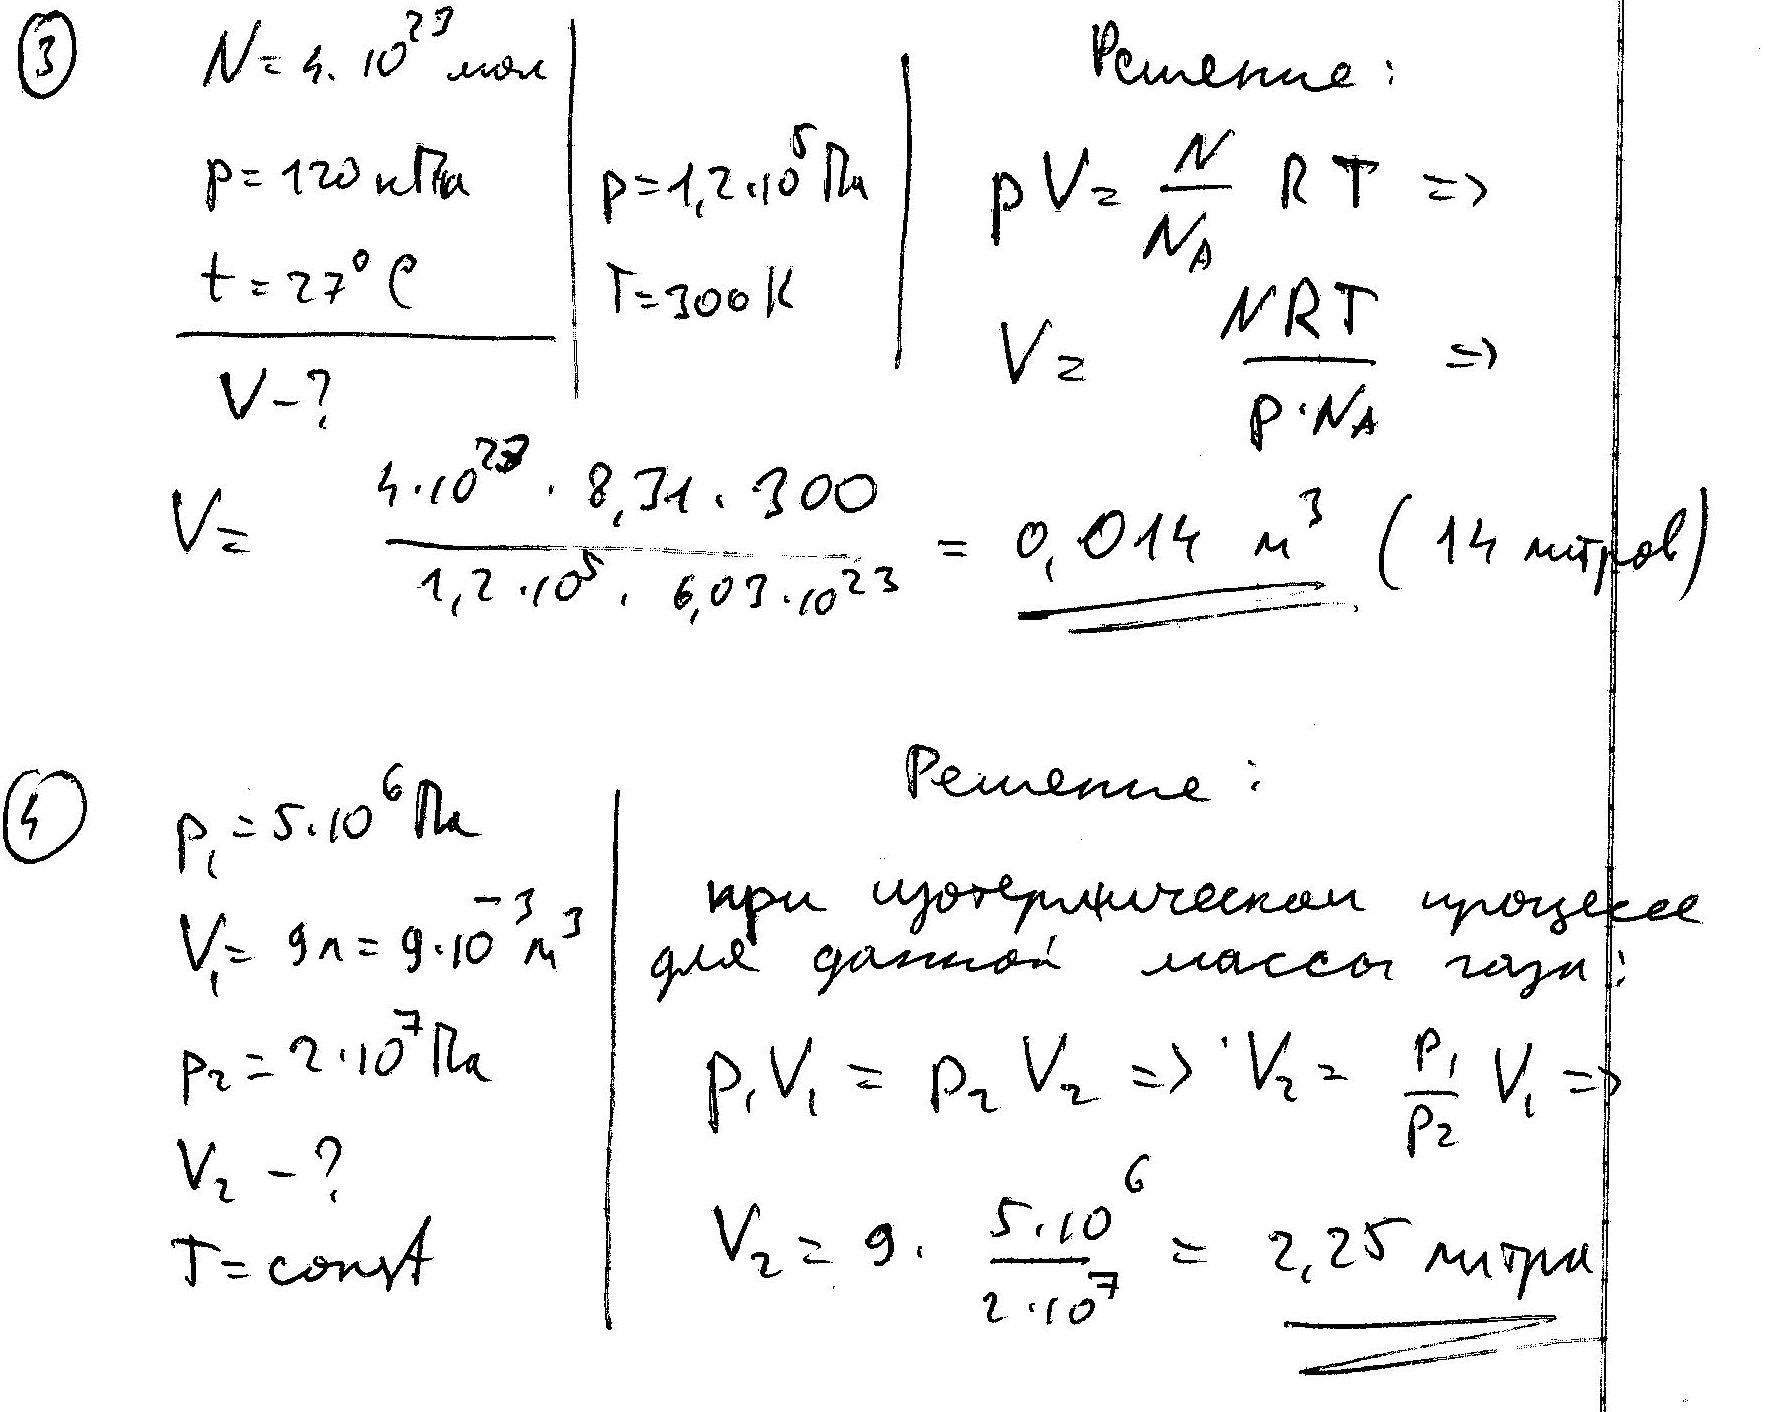 ③ N = 4·10²³ мол
p = 120 кПа
t = 27° C
V - ?
p = 1,2·10⁵ Па
T = 300 K
Решение:
pV = N/N_A RT =>
V = NRT/(p·N_A) =>
V = (4·10²³ · 8,31 · 300)/(1,2·10⁵ · 6,03·10²³) = 0,014 м³ (14 литров)
④ p₁ = 5·10⁶ Па
V₁ = 9л = 9·10⁻³ м³
p₂ = 2·10⁷ Па
V₂ - ?
T = const
Решение:
при изотермическом процессе
для данной массы газа:
p₁V₁ = p₂V₂ => V₂ = p₁/p₂ V₁ =>
V₂ = 9 · (5·10⁶)/(2·10⁷) = 2,25 литра